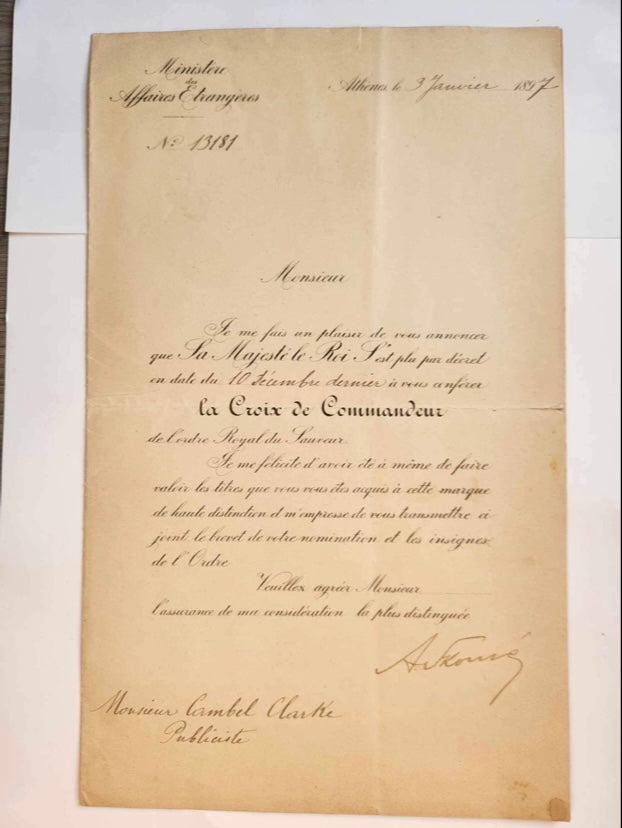 Ministère
des
Affaires Etrangères
Athènes, le 3 Janvier 1897
Nº 13181
Monsieur
Je me fais un plaisir de vous annoncer
que Sa Majesté le Roi S'est plu par décret
en date du 10 Décembre dernier à vous conférer
la Croix de Commandeur
de l'ordre Royal du Sauveur.
Je me félicite d'avoir été à même de faire
valoir les titres que vous vous êtes acquis à cette marque
de haute distinction et m'empresse de vous transmettre ci
joint le brevet de votre nomination et les insignes
de l'Ordre
Veuillez agréer Monsieur
l'assurance de ma considération la plus distinguée
Monsieur Cambel Clarke
Publiciste